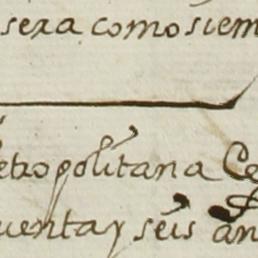 sera como siem
etropolitana Ce
uenta y seis an